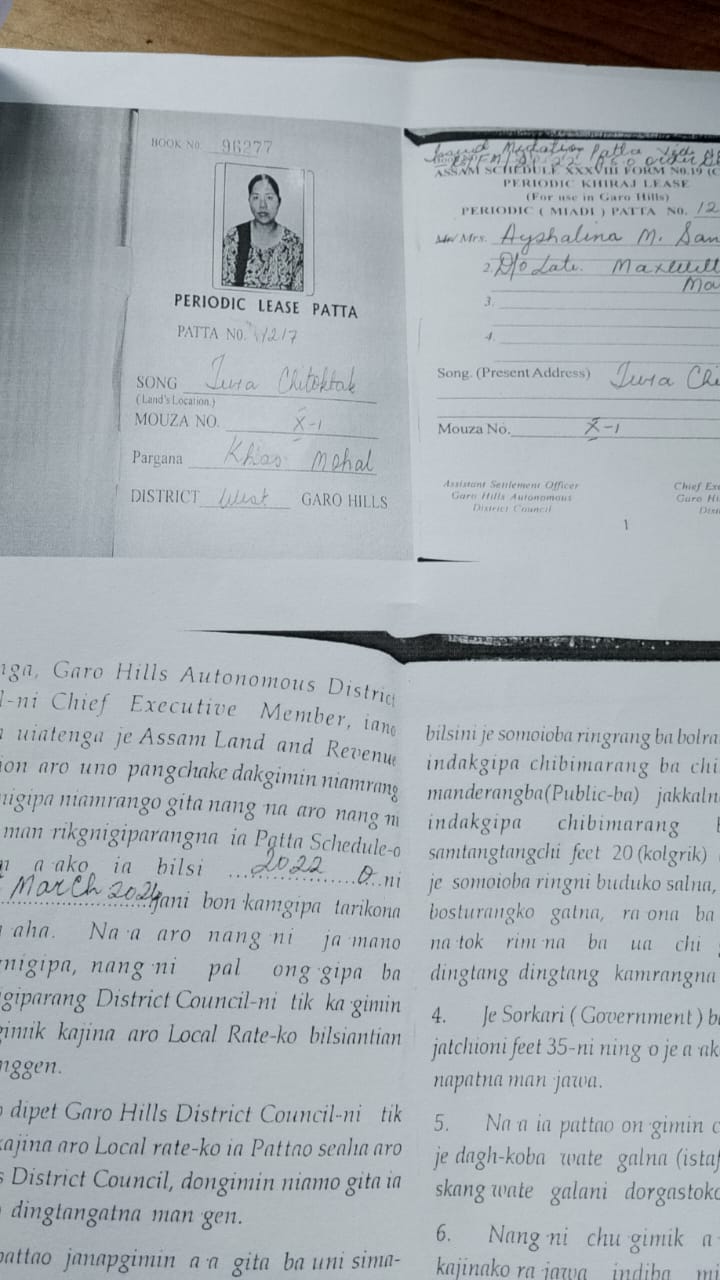 BOOK NO. 96277
PERIODIC LEASE PATTA
PATTA NO. 1217
SONG Tura Chitoktak
(Land's Location.)
MOUZA NO. X-1
Pargana Khas Mohal
DISTRICT West GARO HILLS
Issued Mutation Patta Vide
ASSAM SCHEDULE XXXVIII FORM NO.19 (
PERIODIC KHIRAJ LEASE
(For use in Garo Hills)
PERIODIC ( MIADI ) PATTA NO. 12
Mr/ Mrs. Ayshalina M. San
2. D/o Late. Maxwill
Ma
3.
4.
Song. (Present Address) Tura Chi
Mouza No. X-1
Assistant Settlement Officer
Garo Hills Autonomous
District Council
Chief Ex
Garo Hi
Dist
1
nga, Garo Hills Autonomous District
l-ni Chief Executive Member, iano
a uiatenga je Assam Land and Revenue
ion aro uno pangchake dakgimin niamrang
nigipa niamrango gita nang·na aro nang·ni
man·rikgnigiparangna ia Patta Schedule-o
a·ako ia bilsi 2022 O ni
March 2024 jani bon·kamgipa tarikona
aha. Na·a aro nang·ni ja·mano
nigipa, nang·ni pal ong·gipa ba
giparang District Council-ni tik ka·gimin
gimik kajina aro Local Rate-ko bilsiantian
nggen.
dipet Garo Hills District Council-ni tik
kajina aro Local rate-ko ia Pattao sealna aro
s District Council, dongimin niamo gita ia
dingtangatna man·gen.
pattao janapgimin a·a gita ba uni sima-
bilsini je somoioba ringrang ba bolra
indakgipa chibimarang ba chi
manderangba(Public-ba) jakkaln
indakgipa chibimarang
samtangtangchi feet 20 (kolgrik)
je somoioba ringni buduko salna,
bosturangko gatna, ra·ona ba
na·tok rim·na ba ua chi
dingtang dingtang kamrangna
4. Je Sorkari ( Government ) b
jatchioni feet 35-ni ning·o je a·ak
napatna man·jawa.
5. Na·a ia pattao on·gimin c
je dagh-koba wate galna (istaf
skang wate galani dorgastoko
6. Nang·ni chu·gimik a
kajinako ra·jawa indiba